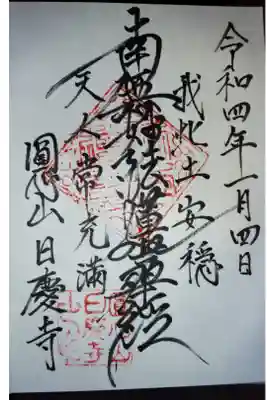 令和四年一月四日
我此土安穏
南無妙法蓮華経
天人常充満
圓応山日慶寺